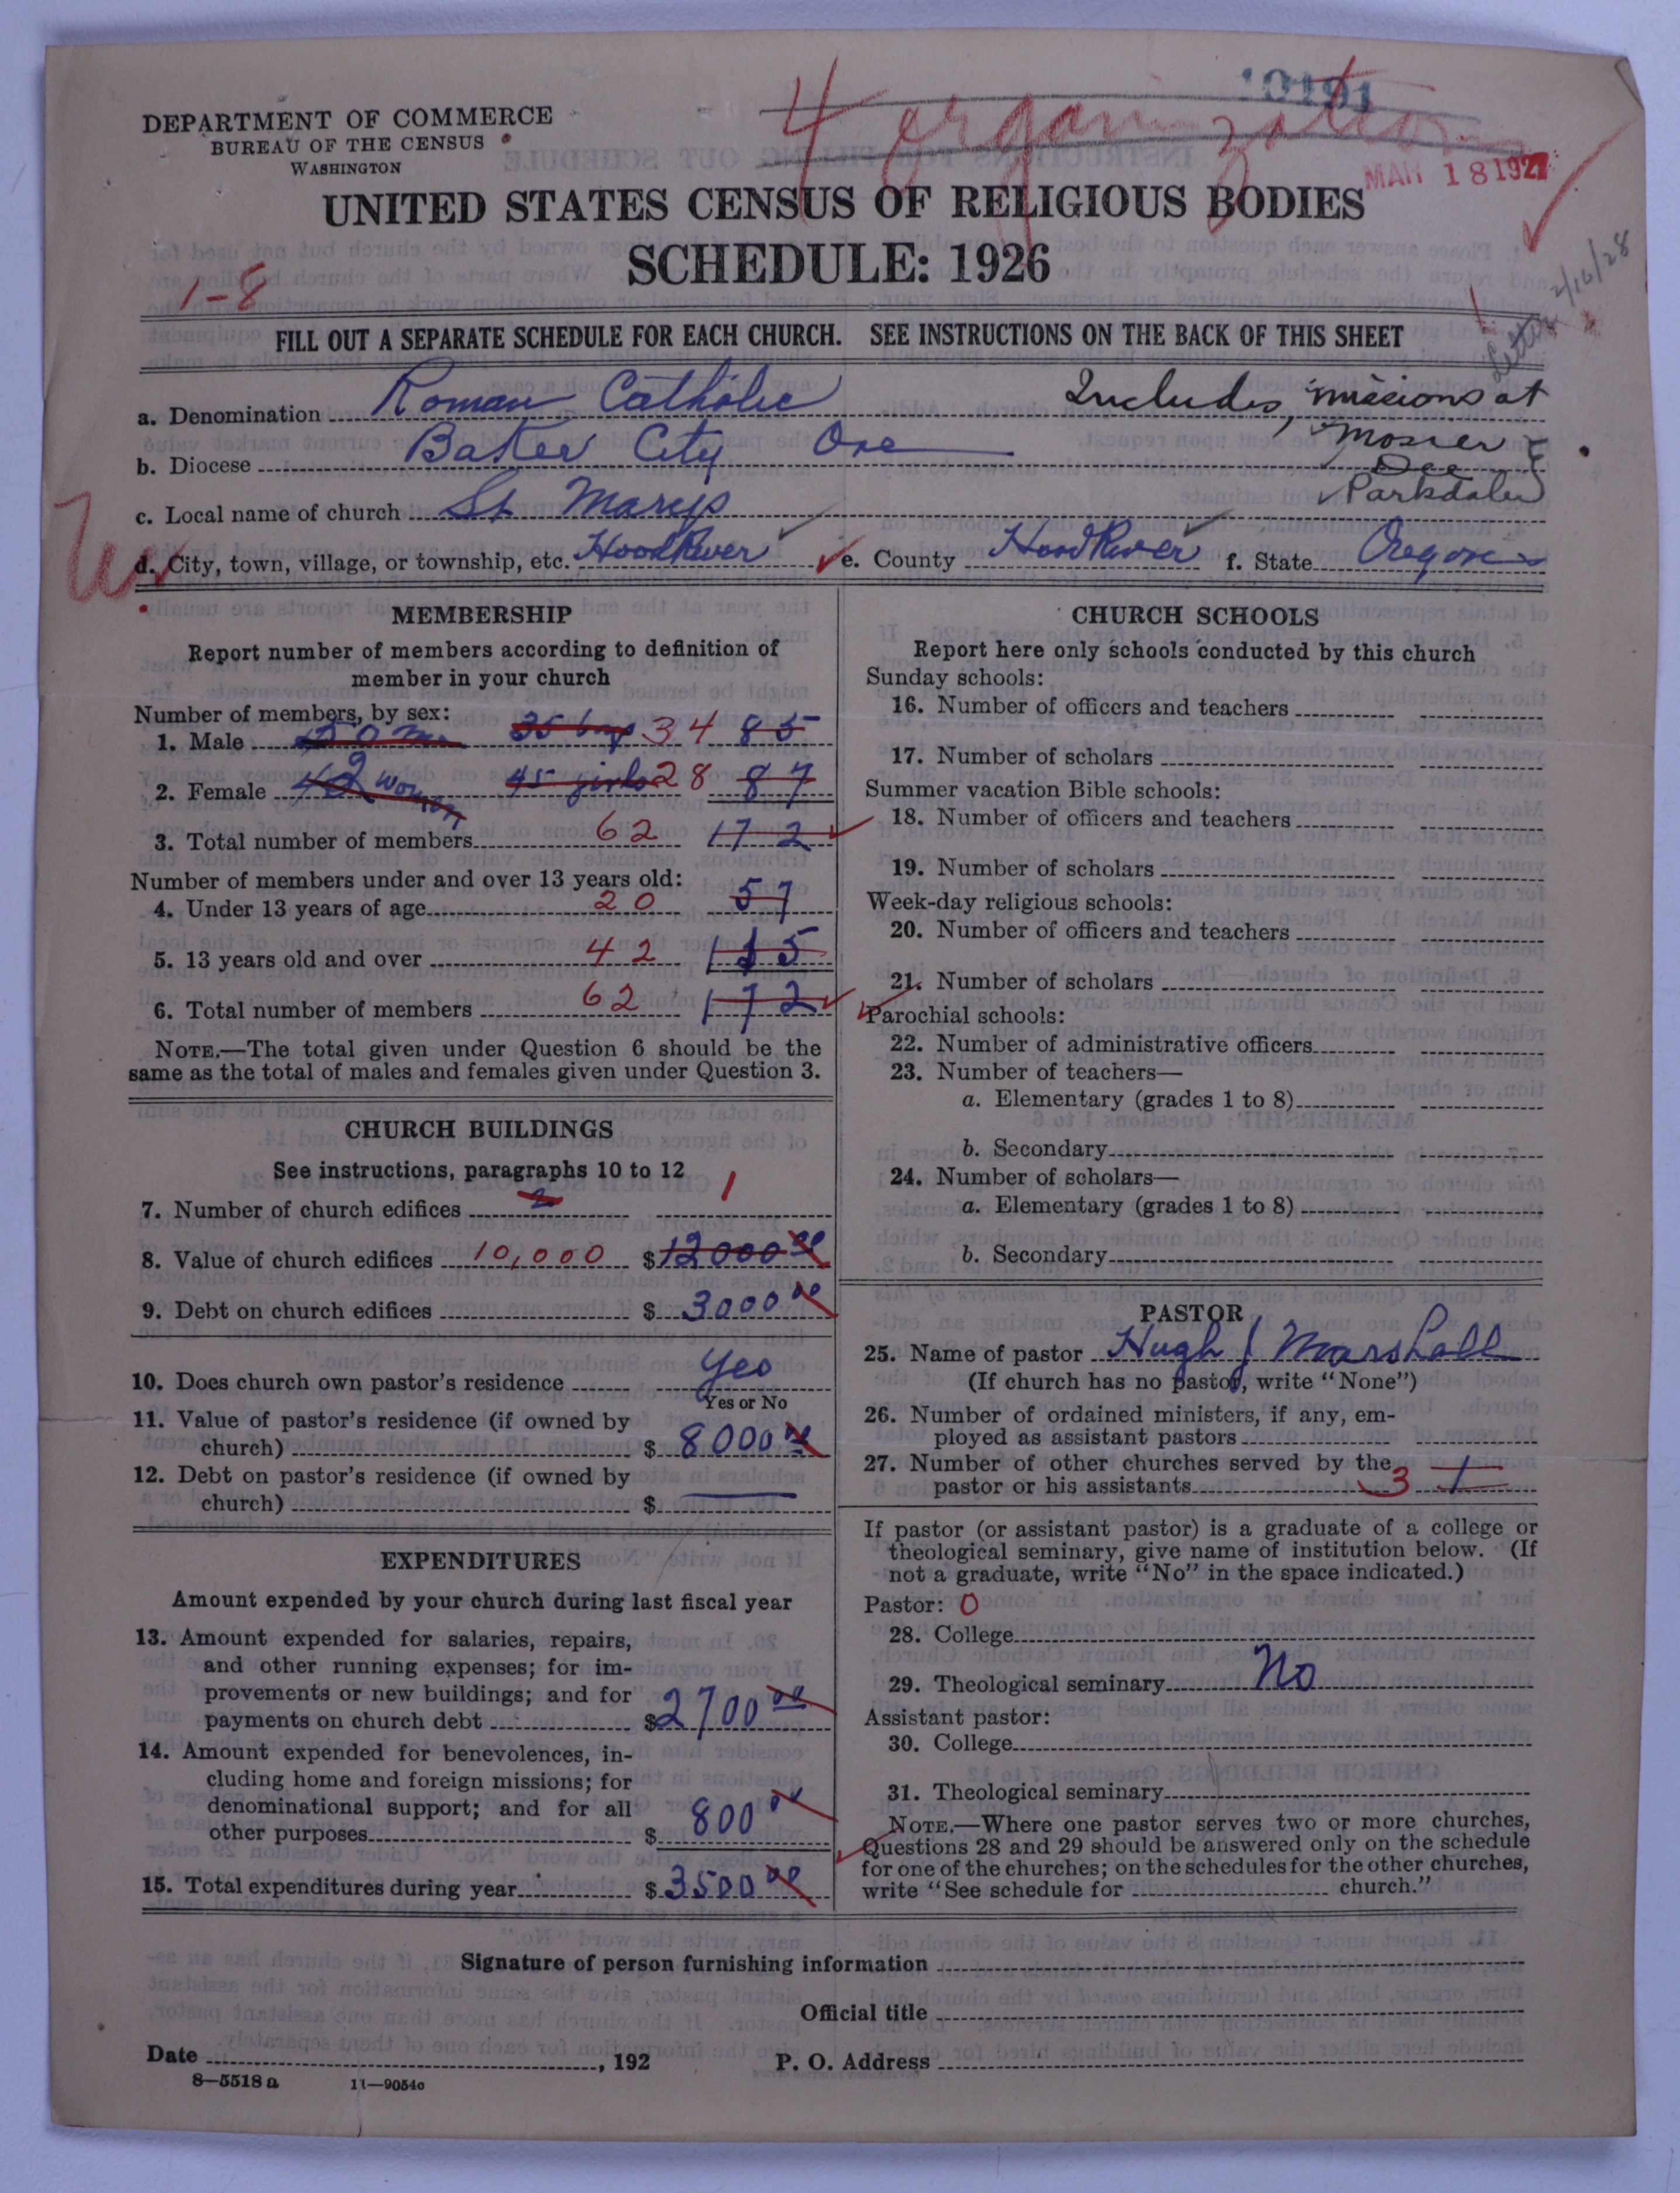 10191
4 organizations
DEPARTMENT OF COMMERCE
BUREAU OF THE CENSUS
WASHINGTON
MAR 18 1927
UNITED STATES CENSUS OF RELIGIOUS BODIES
SCHEDULE: 1926
1-8
2/10/28
FILL OUT A SEPARATE SCHEDULE FOR EACH CHURCH. SEE INSTRUCTIONS ON THE BACK OF THIS SHEET
a. Denomination Roman Catholic Includes missions at
b. Diocese Baker City Ore Mosier
Dee
c. Local name of church St Marys Parkdale
d. City, town, village, or township, etc. Hood River e. County Hood River f. State Oregon
MEMBERSHIP
Report number of members according to definition of
member in your church
Number of members, by sex:
1. Male 50 m 35 boys 34 85
2. Female 42 women 45 girls 28 87
3. Total number of members 62 172
Number of members under and over 13 years old:
4. Under 13 years of age 20 57
5. 13 years old and over 42 115
6. Total number of members 62 172
NOTE.—The total given under Question 6 should be the
same as the total of males and females given under Question 3.
CHURCH BUILDINGS
See instructions, paragraphs 10 to 12
7. Number of church edifices 2 1
8. Value of church edifices 10,000 $12000 00
9. Debt on church edifices $ 3000 00
10. Does church own pastor's residence Yes
Yes or No
11. Value of pastor's residence (if owned by
church) $ 8000 00
12. Debt on pastor's residence (if owned by
church) $
EXPENDITURES
Amount expended by your church during last fiscal year
13. Amount expended for salaries, repairs,
and other running expenses; for im-
provements or new buildings; and for
payments on church debt $2700 00
14. Amount expended for benevolences, in-
cluding home and foreign missions; for
denominational support; and for all
other purposes $ 800 00
15. Total expenditures during year $3500 00
CHURCH SCHOOLS
Report here only schools conducted by this church
Sunday schools:
16. Number of officers and teachers
17. Number of scholars
Summer vacation Bible schools:
18. Number of officers and teachers
19. Number of scholars
Week-day religious schools:
20. Number of officers and teachers
21. Number of scholars
Parochial schools:
22. Number of administrative officers
23. Number of teachers—
a. Elementary (grades 1 to 8)
b. Secondary
24. Number of scholars—
a. Elementary (grades 1 to 8)
b. Secondary
PASTOR
25. Name of pastor Hugh J Marshall
(If church has no pastor, write "None")
26. Number of ordained ministers, if any, em-
ployed as assistant pastors
27. Number of other churches served by the
pastor or his assistants 3 1
If pastor (or assistant pastor) is a graduate of a college or
theological seminary, give name of institution below. (If
not a graduate, write "No" in the space indicated.)
Pastor: 0
28. College
29. Theological seminary No
Assistant pastor:
30. College
31. Theological seminary
NOTE.—Where one pastor serves two or more churches,
Questions 28 and 29 should be answered only on the schedule
for one of the churches; on the schedules for the other churches,
write "See schedule for church."
Signature of person furnishing information
Official title
Date , 192 P. O. Address
8—5518 a 11—9054c